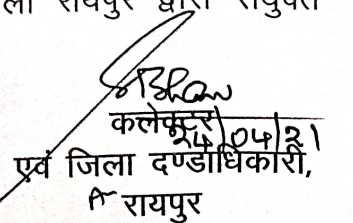 रायपुर द्वारा संयुक्त
कलेक्टर
24/04/21
एवं जिला दण्डाधिकारी,
रायपुर